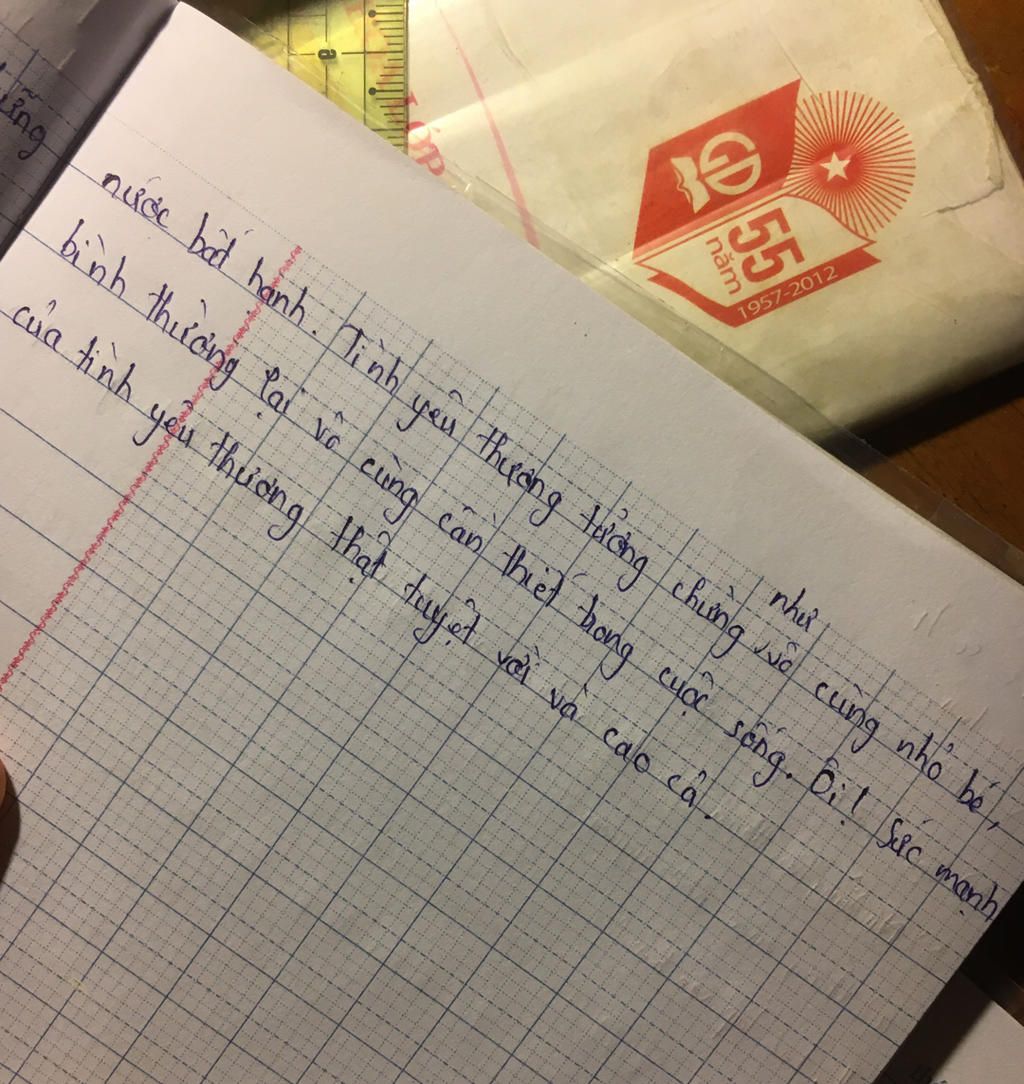 nước bất hạnh. Tình yêu thương tưởng chừng như vô cùng nhỏ bé,
bình thường lại vô cùng cần thiết trong cuộc sống. Ôi! Sức mạnh
của tình yêu thương thật tuyệt vời và cao cả.
8
LỚP
GD
55
năm
1957-2012